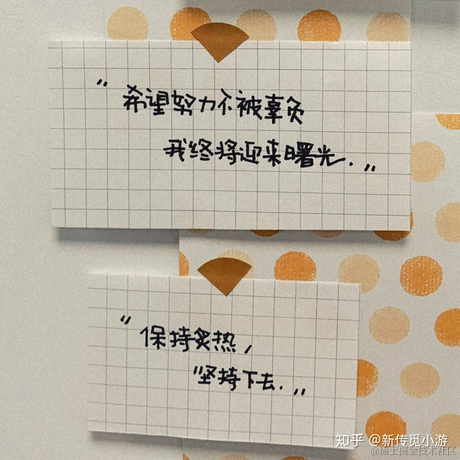 “希望努力不被辜负
我终将迎来曙光.”
“保持炙热，
坚持下去.”
知乎 @新传觅小游
@稀土掘金技术社区